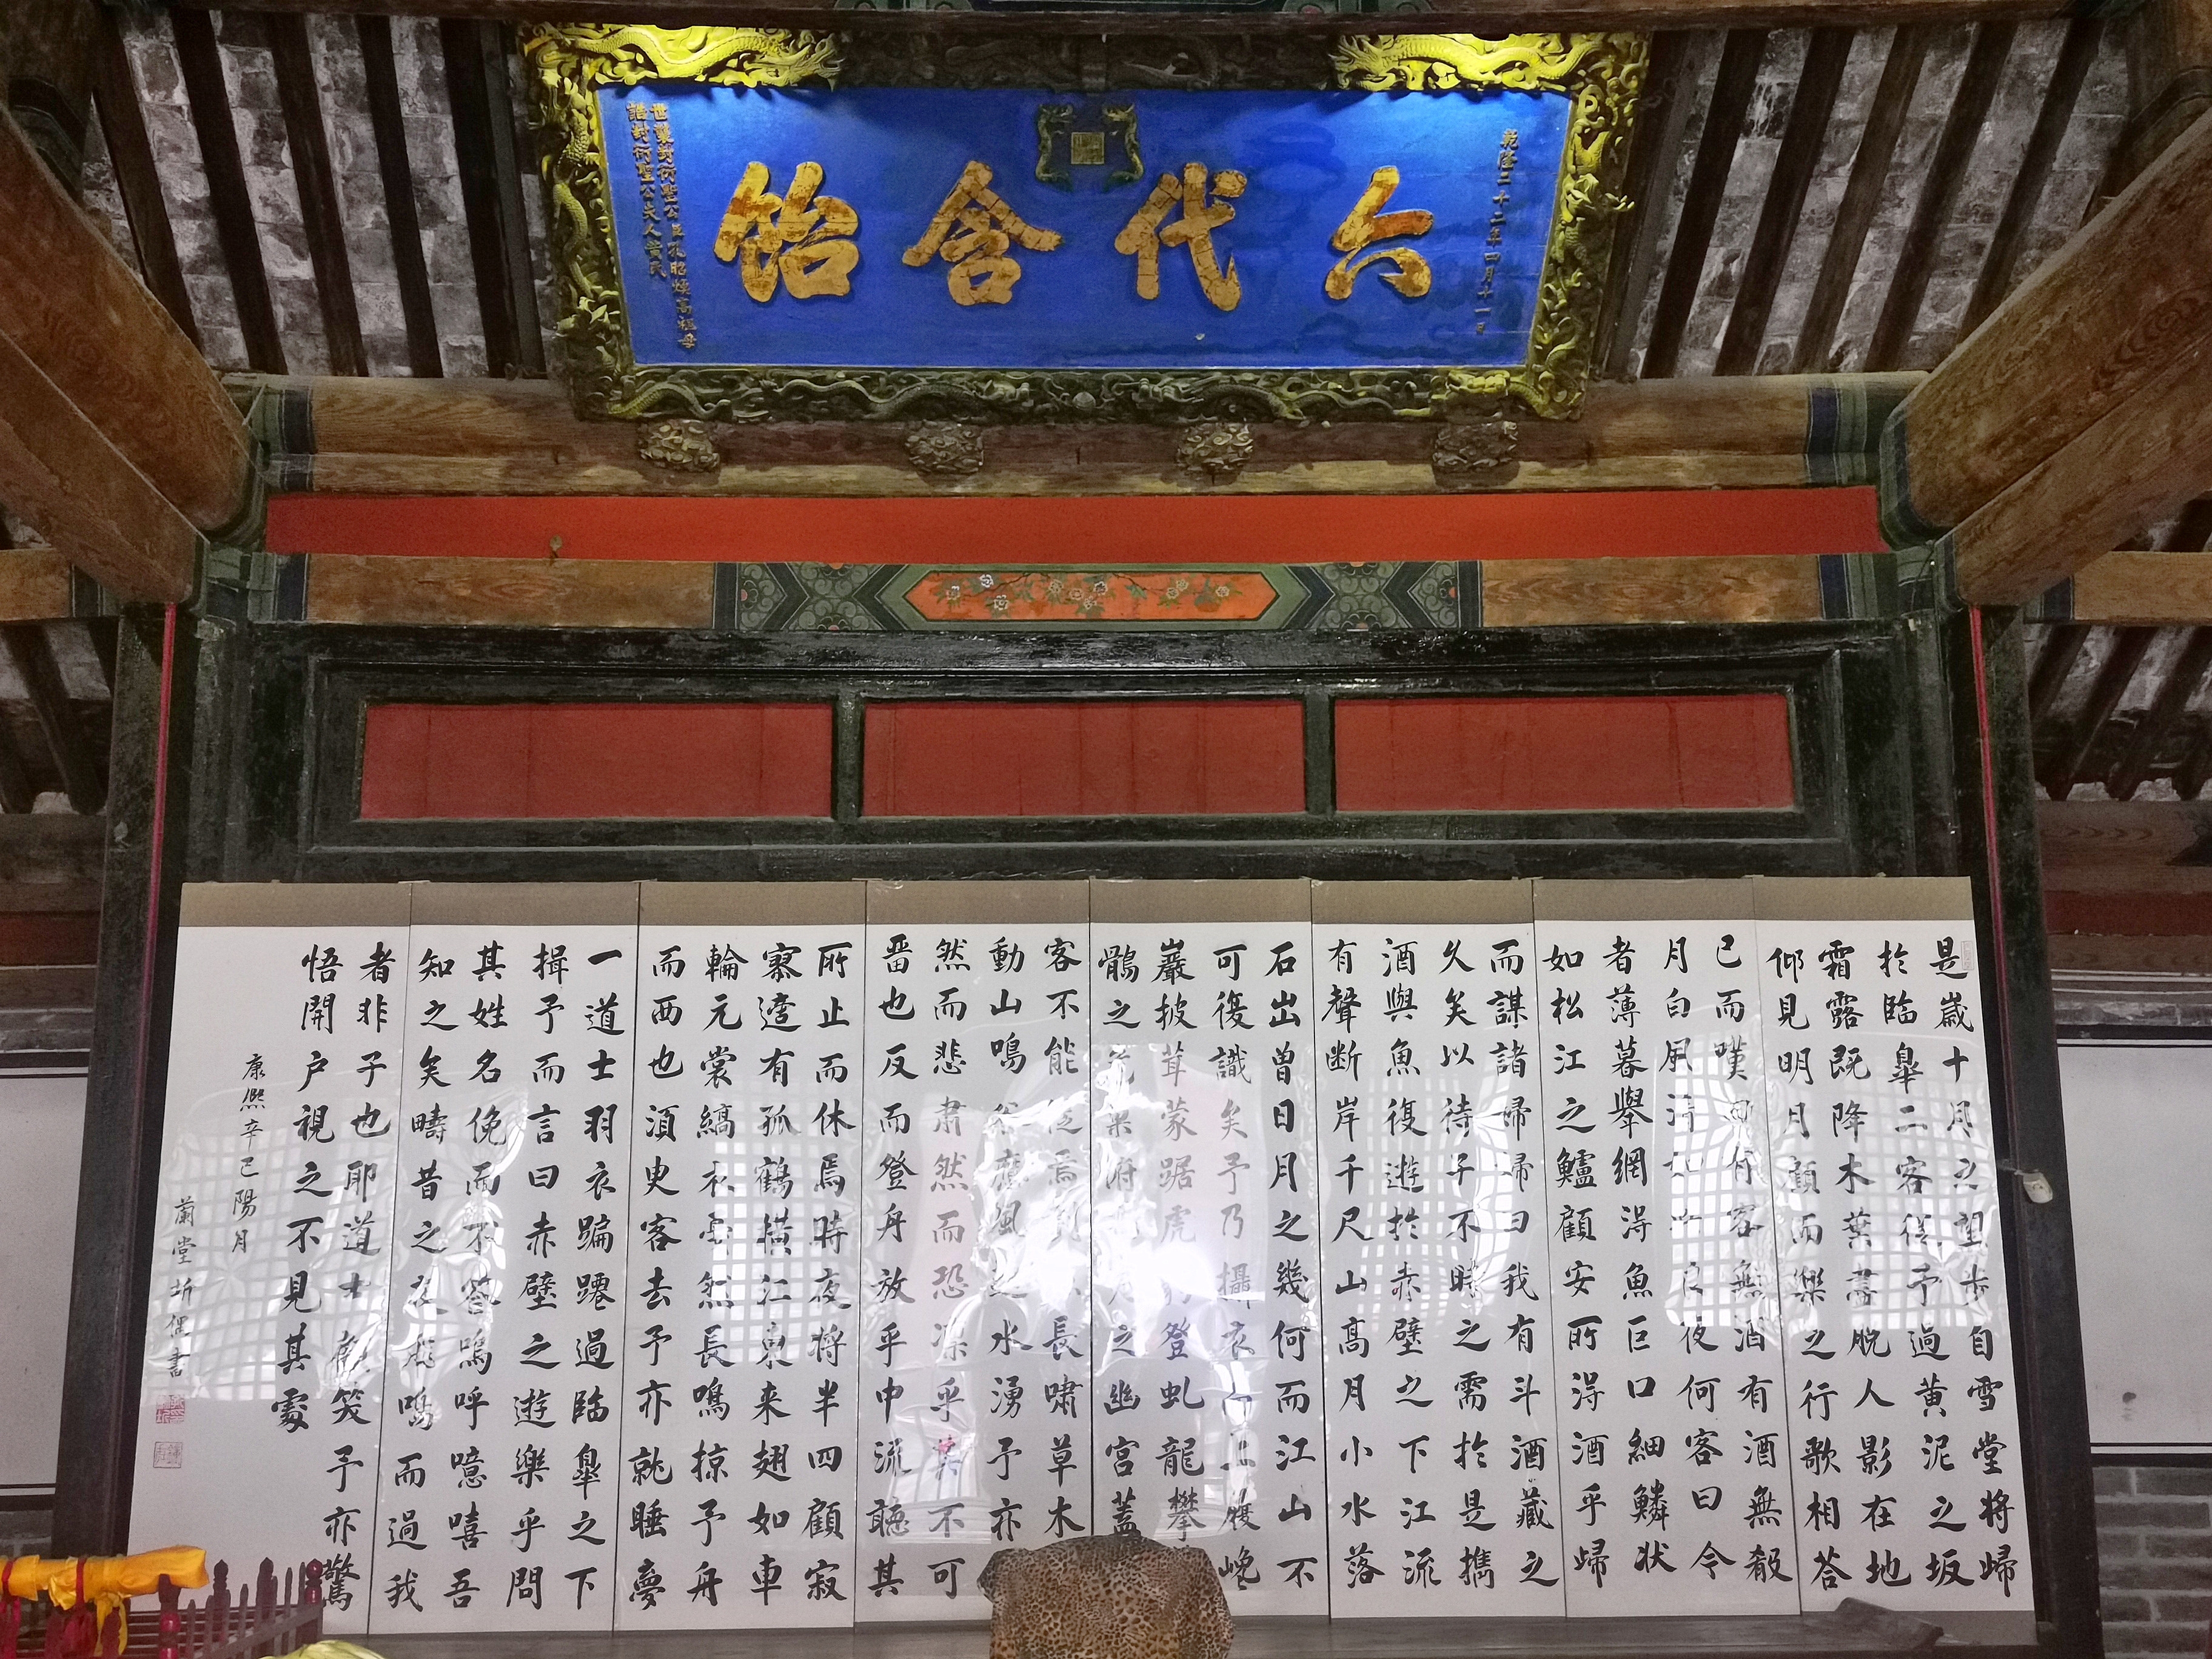 六代含飴
乾隆二十二年四月十一日
世襲封衍聖公臣孔昭煥高祖母
誥封衍聖公夫人黃氏
是歲十月之望步自雪堂将歸
於臨皋二客從予過黃泥之坂
霜露既降木葉盡脫人影在地
仰見明月顧而樂之行歌相答
已而嘆曰有客無酒有酒無殽
月白風清如此良夜何客曰今
者薄暮舉網得魚巨口細鱗狀
如松江之鱸顧安所得酒乎歸
而謀諸婦婦曰我有斗酒藏之
久矣以待子不時之需於是攜
酒與魚復遊於赤壁之下江流
有聲断岸千尺山高月小水落
石出曾日月之幾何而江山不
可復識矣予乃攝衣而上履巉
巖披茸蒙踞虎豹登虬龍攀
鶻之危巢俯之幽宮蓋
客不能從焉劃長嘯草木
動山鳴谷應風起水湧予亦
然而悲肅然而恐凜乎其不可
畱也反而登舟放乎中流聽其
所止而休焉時夜将半四顧寂
寥適有孤鶴橫江東来翅如車
輪元裳縞衣戛然長鳴掠予舟
而西也須臾客去予亦就睡夢
一道士羽衣蹁躚過臨皋之下
揖予而言曰赤壁之遊樂乎問
其姓名俛而不答嗚呼噫嘻吾
知之矣疇昔之夜飛鳴而過我
者非子也耶道士顧笑予亦驚
悟開户視之不見其處
康熙辛巳陽月
蘭堂圻書